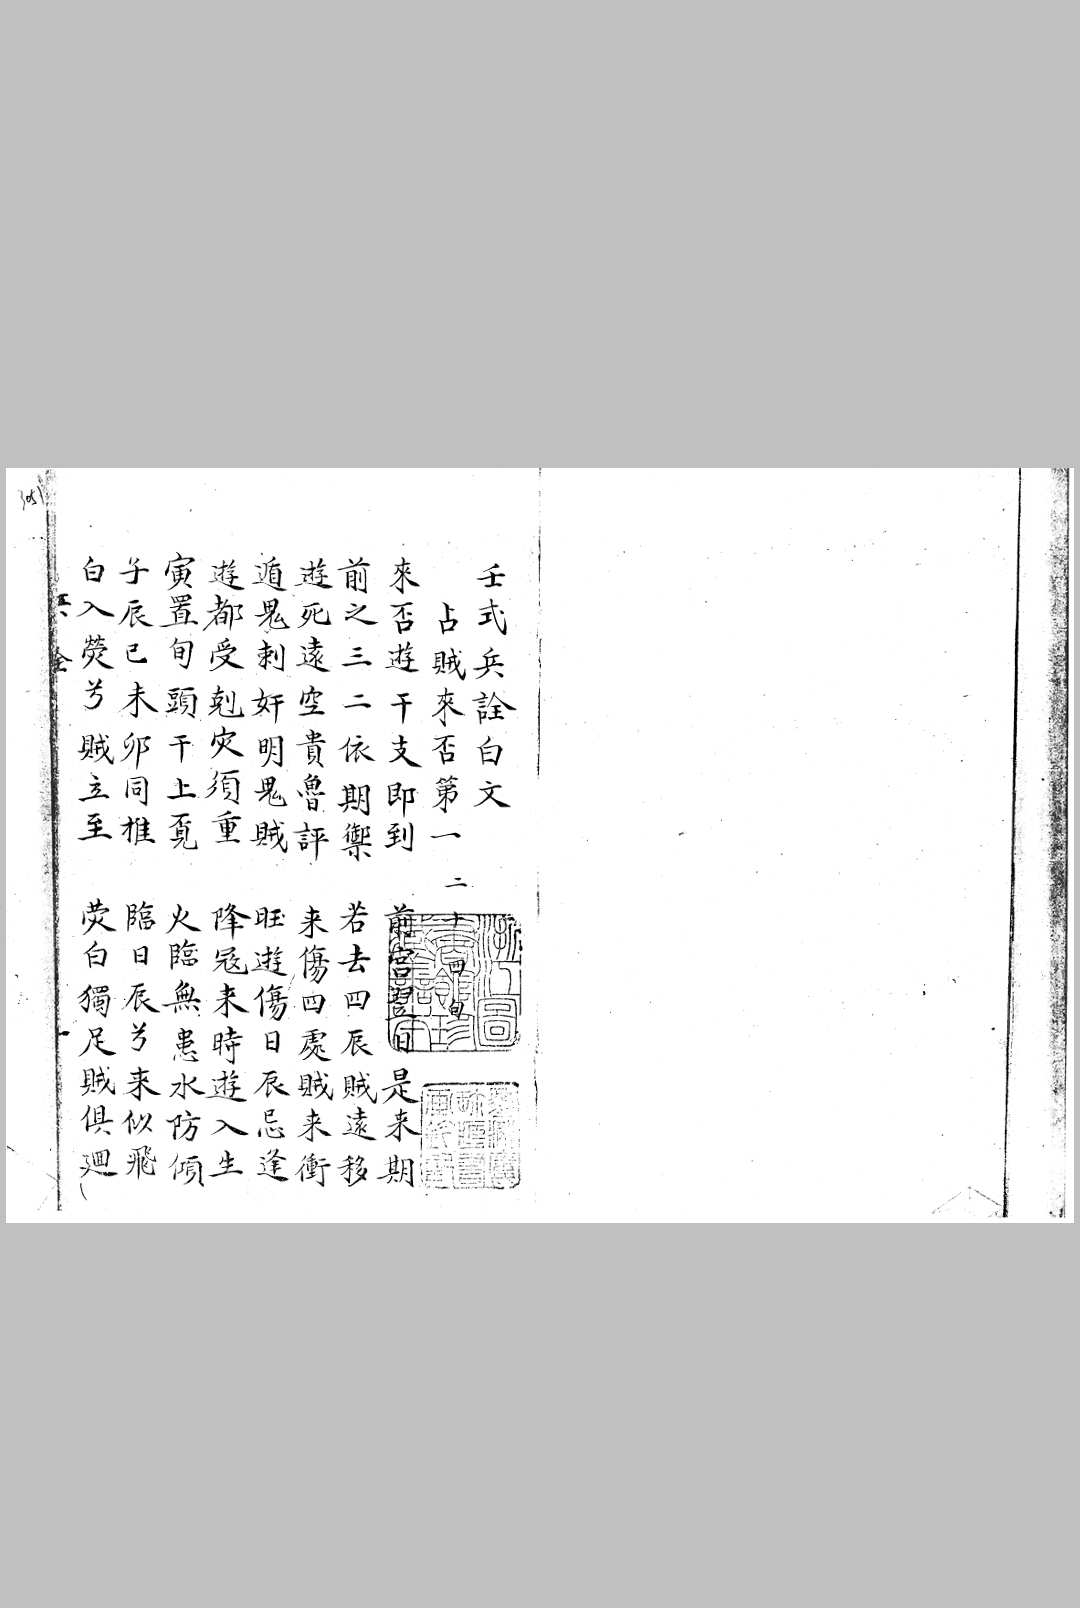 壬式兵詮白文
占賊來否第一 二十四句
來否遊干支即到 前宮翌日是来期
前之三二依期禦 若去四辰賊遠移
遊死遠空貴魯評 来傷四處賊来衝
遁鬼刺奸明鬼賊 旺遊傷日辰忌逢
遊都受剋灾須重 降冠来時遊入生
寅置旬頭干上覔 火臨無患水防傾
子辰巳未卯同推 臨日辰兮来似飛
白入熒兮賊立至 熒白獨足賊俱廻
全
一